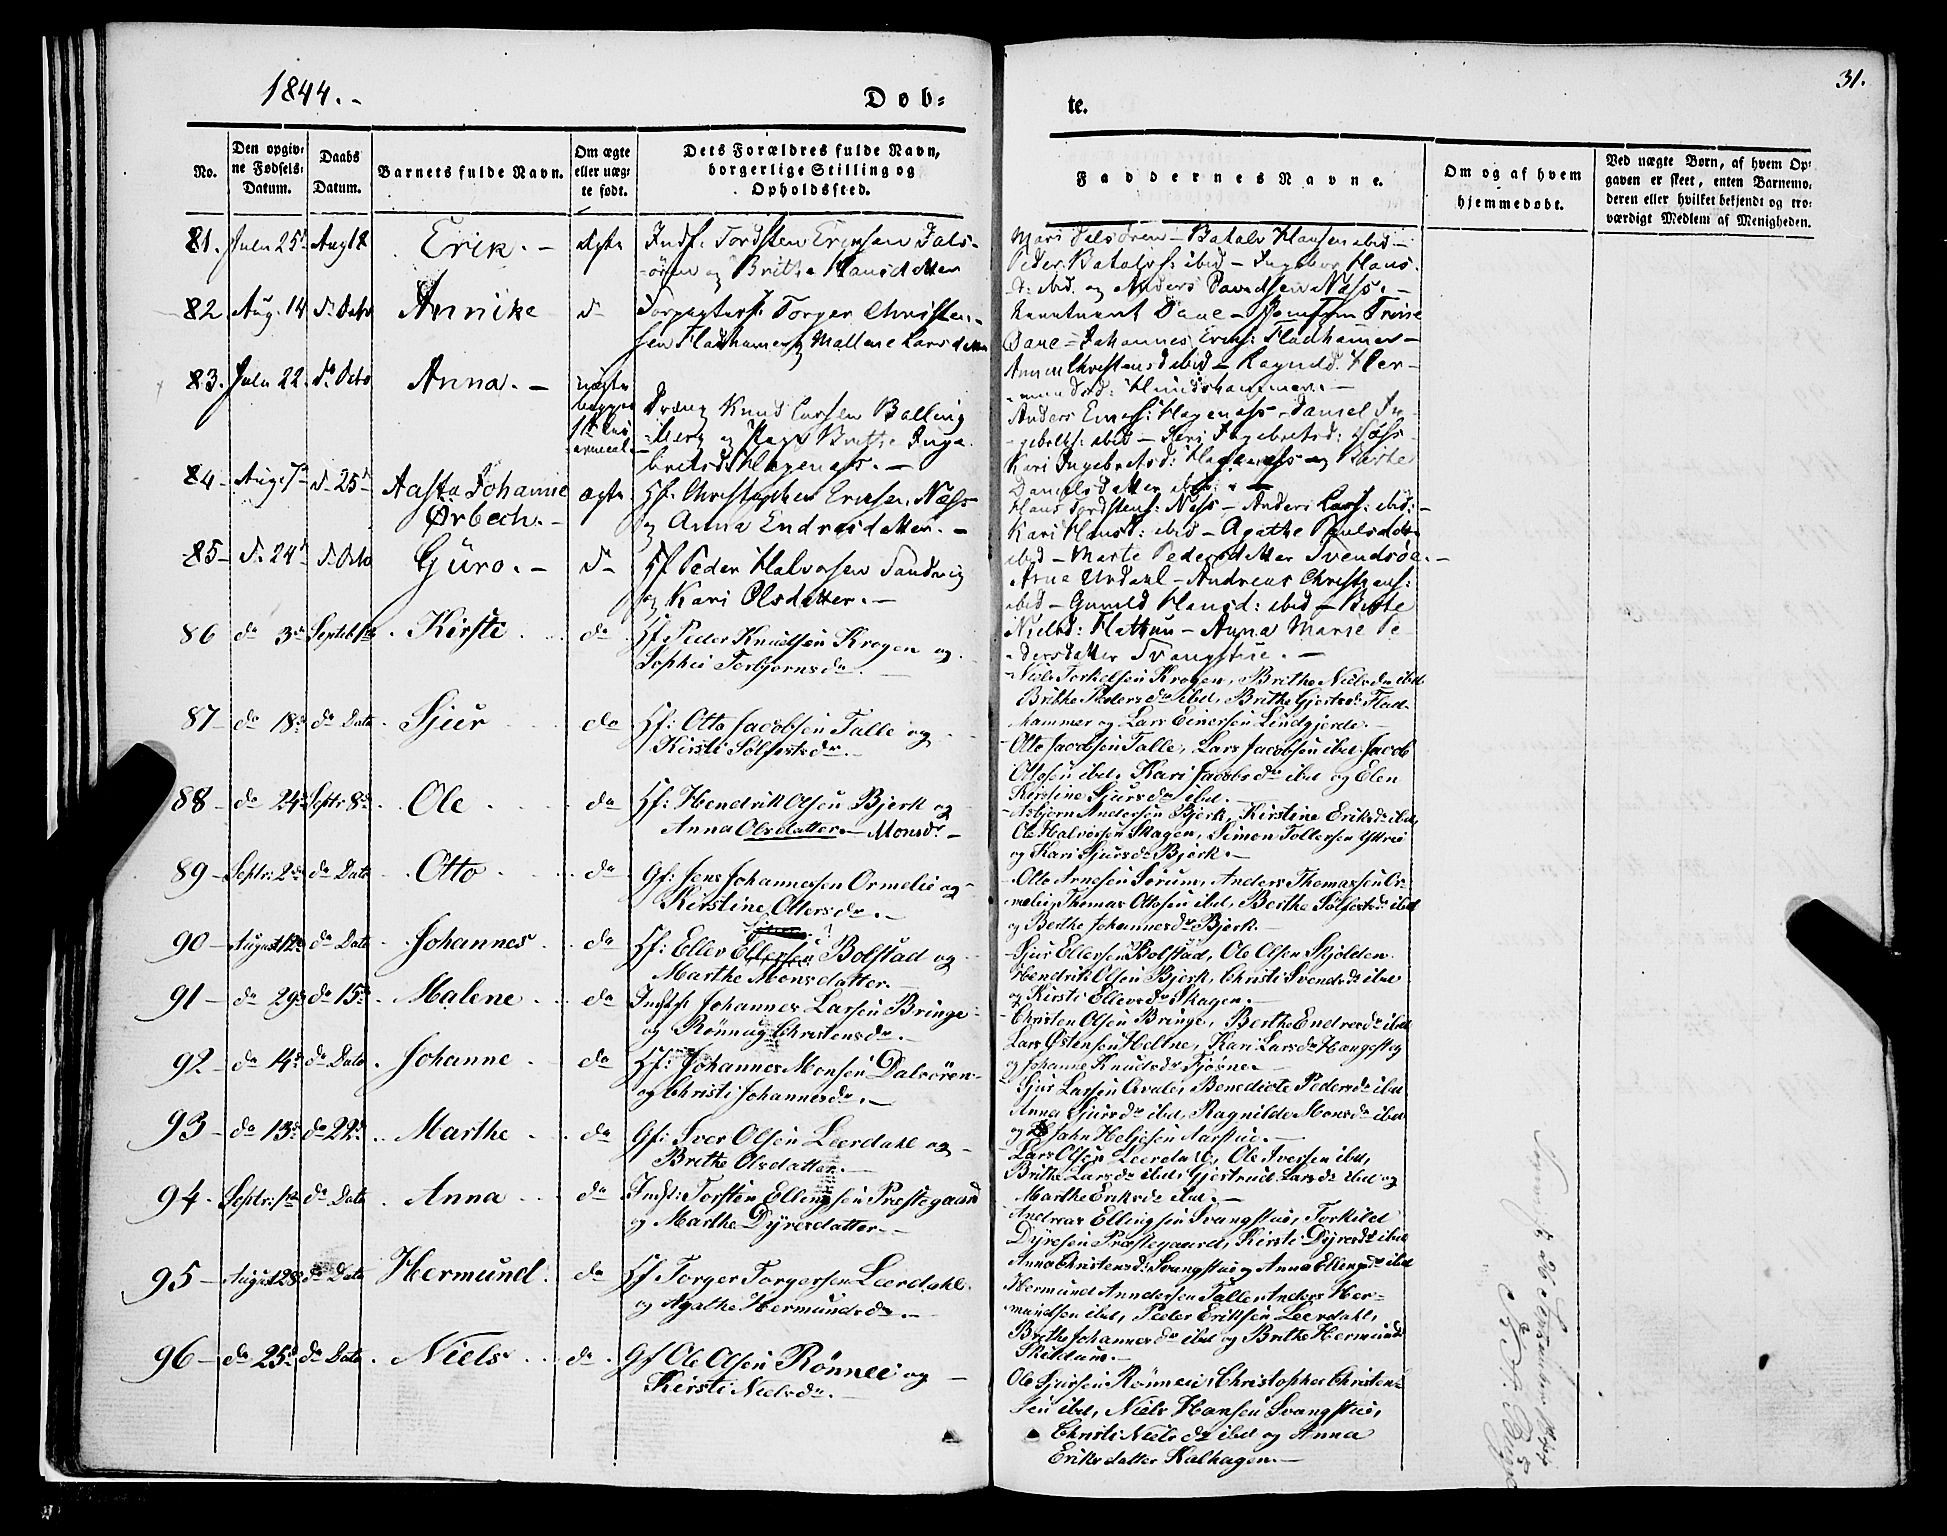 1844.-
Døb-
te.
31.
No.
Den opgiv-
ne Fødsels-
Datum.
Daabs
Datum.
Barnets fulde Navn.
Om ægte
eller uæg-
te født.
Dets Forældres fulde Navn,
borgerlige Stilling og
Opholdssted.
Faddernes Navne.
Om og af hvem
hjemmedøbt.
Ved uægte Børn, af hvem Op-
gaven er skeet, enten Barnemo-
deren eller hvilket bekjendt og tro-
værdigt Medlem af Menigheden.
81. Aug 18 Erik. - ægte Indf: Tordsten Ericksen Dals-
-ören og Britha Hansdatter
Mari Dalsören - Batalv Hansen ibid -
Peder Batalvs: ibid - Ingebor Hans-
d: ibid. og Anders Davidsen Næss. -
82. Aug. 14 Annike Torger Christen-
sen Fladhamer og Mallene Larsdatter
Dane - Johannes Ericks: Fladhamer -
Anna Christensd ibid - Ragnild Her-
83. Anna. - uægte
Dreng Knud Larsen Balling
-berg og Pige Brithe Inge-
bretsd: Hagenæss. -
Anders Hagenæss - Daniel In-
gebrets: ibid - Kari Ingebretsd:
Kari Ingebretsd: Hagenæss og Berte
Danielsdatter ibid. -
84 - Aug. 7 d. 25 Aasta Johanne
Ørbech. -
ægte Hf: Christopher Ericksen Næss
og Anna Endresdatter. -
Hans Tordstens: Næss - Anders Lars: ibid: -
Kari Hansd: ibid - Agathe Poulsdatter
ibid - Marte Pedersdatter Svendsøe. -
85 - d. 24 Guro. - d - Hf Peder Halvorsen Sandvig
og Kari Olsdatter. -
Arne Urdahl - Andreas Christians:
ibid - Gunild Hansd: ibid - Berte
Nielsd: Hattun - Anna Marie Pe-
dersdatter Svangstue. -
86 do 3 Septeb 1 Kirsti do Hf Peder Knudsen Krogen og
Sophie Torbjornsdr.
Niels Torkelsen Krogen, Brithe Nielsdr ibd
Brithe Pedersdr ibd, Brithe Gjertsdr Flad-
hammer og Lars Einersen Lindgjerde. -
87 - do 18 do Dato Sjur do Hf: Otto Jacobsen Talle og
Kirsti Solfestsdr. -
Otto Jacobsen Talle, Lars Jacobsen ibd. Jacob
Ottosen ibd, Kari Jacobsdr ibd og Elen
Kirstine Sjursdr ibd. -
88 - do 24 Septr 8 Ole do Hf: Hendrik Olsen Bjerk og
Anna Olsdatter. - Monsdr -
Asbjørn Andersen Bjerk, Kirstine Eriksdr ibd,
Ole Halvorsen Skagen, Simon Tollefsen Yttrie
og Kari Sjursdr Bjerk. -
89 - Septr: 2 do Dato Otto do Gf: Jens Johannessen Ormelie og
Kirstine Ottersdr. -
Otto Arnesen Sørum, Anders Thomassen Or-
melie, Thomas Ottosen ibd, Berthe Solfestsdr ibd
og Berthe Johannesdr Bjerk. -
90 - August 12 do Dato Johannes do Hf: Ellev Ellefsen Bolstad og
Marthe Monsdatter. -
Sjur Ellefsen Bolstad, Ole Olsen Skjolden
Hendrik Olsen Bjerk, Christi Svendsdr ibd
og Kirsti Ellevsdr Skagen. -
91 - do 29 do 15 Malene do Indst Johannes Larsen Bringe
og Rönnug Christensdr. -
Christen Olsen Bringe, Berthe Endresdr ibd
Lars Østensen Heltne, Kari Larsdr Haugesteg
og Johanne Knudsdr Fjøsne
92 - do 14 do Dato Johanne do Hf: Johannes Monsen Dalsören
og Christi Johannesdr. -
Sjur Larsen Qvale, Benedicte Pedersdr ibd
Anna Sjursdr ibd, Ragnilde Monsdr ibd
og John Heljesen Aarstue. -
93 - do 13 do 22 Marthe do Gf: Iver Olsen Leerdahl og
Brithe Olsdatter. -
Lars Olsen Leerdahl, Ole Iversen ibd,
Brithe Larsdr ibd, Gjertrud Larsdr ibd og
Marthe Eriksdr ibd. -
94 - Septr: 1 do Dato Anna do Indst: Torsten Ellingsen Præstegaard
og Marthe Dyresdatter. -
Andreas Ellingsen Svangstue, Torkild
Dyresen Præstegaard, Kirsti Dyresdr ibd
Anna Christensdr Svangstue og Anna Ellingsdr ibd
95 - August 28 do Dato Hermund do Hf Torger Torgersen Leerdahl
og Agathe Hermundsdr. -
Hermund Anndersen Talle, Anders Her-
mundsen ibd, Peder Eriksen Leerdahl,
Brithe Johannesdr ibd og Brithe Hermundsdr
Skildum. -
96 - do 25 do Dato Niels do Gf Ole Olsen Rönnei og
Kirsti Nielsdr. -
Ole Sjursen Rönnei, Christopher Christen-
sen ibd, Niels Hansen Svangstue,
Christi Nielsdr ibd og Anna
Eriksdatter Kalhagen. -